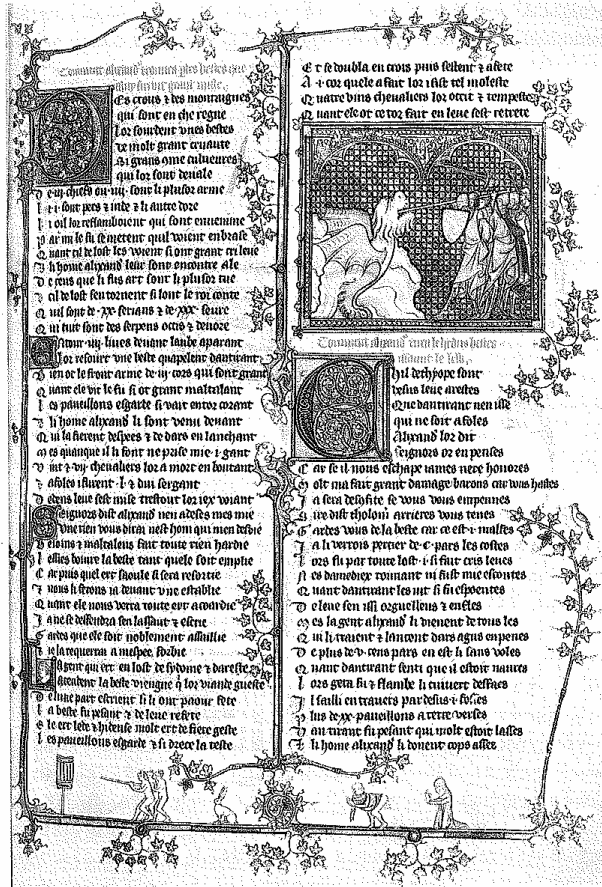 Comment alixandre trouva plusieurs bestes que
Es crous & des montaignes
qui sont en che regne
Lor sourdent unes bestes
de molt grant cruaute
Si grans come culueures
qui lor sont deuale
De .iij. chiefs ou .iiij. sont li plusor arme
Li .i. sont pers & inde & li autre dore
Li oil lor reflamboient qui sont enuenime
Par mi le fu se metent quil voient enbrase
Quant cil de lost les voient si ont grant cri leue
Li home alixand leur sont encontre ale
De cens que li fus art sont li plusor tue
Et cil de lost sen tornent si lont le roi conte
Quil sont de .xx. serians & de .xxx.
Qui tuit sont des serpens ocis & deuore
Entour .iiij. liues deuant laube aparant
Lor resourt vne beste quapelent dantirant
Bien ot le front arme de .iij. cors qui sont grant
Quant ele vit le fu si ot grant maltalant
Les pauellons esgarde si vait entor corant
Li home alixand li sont venu deuant
Qui la fierent despees & de dars en lanchant
Mes quanque il li font ne prise mie .i. gant
Vint & .vij. cheualiers lor a mort en boutant
Et afoles isurent .l. & dui sergant
Dedens leue sest mise trestout lor iex voiant
Seignors dist alixand nen adeses mes mie
Vne rien vous dirai nest hom qui men desdie
Besoins & maltalens fait toute rien hardie
Lessies boiure la beste tant quele soit emplie
Car puis quel ert saoule si sera resortie
Et nous li ferons ia deuant vne establie
Quant ele nous verra toute ert acoardie
Ia ne se deffendra sen lassaut & escrie
Gardes que ele soit noblement assaillie
Et ie la requerrai a mespee forbie
La gent qui ert en lost de sydoine & dareste
Atendent la beste viengne q lor viande gueste
Delune part escrient si li ont paour fete
La beste fu pesant & de leue refete
Ele ert lede & hideuse molt ert de fiere geste
Les pauellons esgarde & si dreca la teste
Et se doubla en trois puis sellent & areste
A .i. cor quele a fait lor i fist tel moleste
Quatre vins cheualiers lor ocit & tempeste
Quant ele ot ce tor fait en leue sest retrete
Comment alixand
Chil dethyope sont
desus leue arestes
Que dantirant nen isse
qui ne soit afoles
Alixand lor dit
seignors or en penses
Car se il nous eschape iames nere honores
Molt ma fait grant damage barons car vous hastes
Ia sera desconfite se vous vous empennes
Sire dist tholomr arrieres vous tenes
Gardes vous de la beste car ce est .i. malfes
Ia li verrois percier de .c. pars les costes
Lors fu par toute lost .i. si fait cris leues
Nes damediex tonnant ni fust mie escoutes
Quant dantirant les uit si fu espoentes
De leue sen issi orguellous & enfles
Mes la gent alixand li vienent de tous les
Qui li traient & lancent dars agus enpenes
De plus de .v. cens pars en est li sans voles
Quant dantirant senti que il estoit naures
Lors geta fu & flambe li cuiuert deffaes
Il sailli en trauers par desus .i. fosses
Plus de .xx. pauellons a terre verses
Dantirant fu pesant qui molt estoit lasses
Li home alixand li donent cops asses